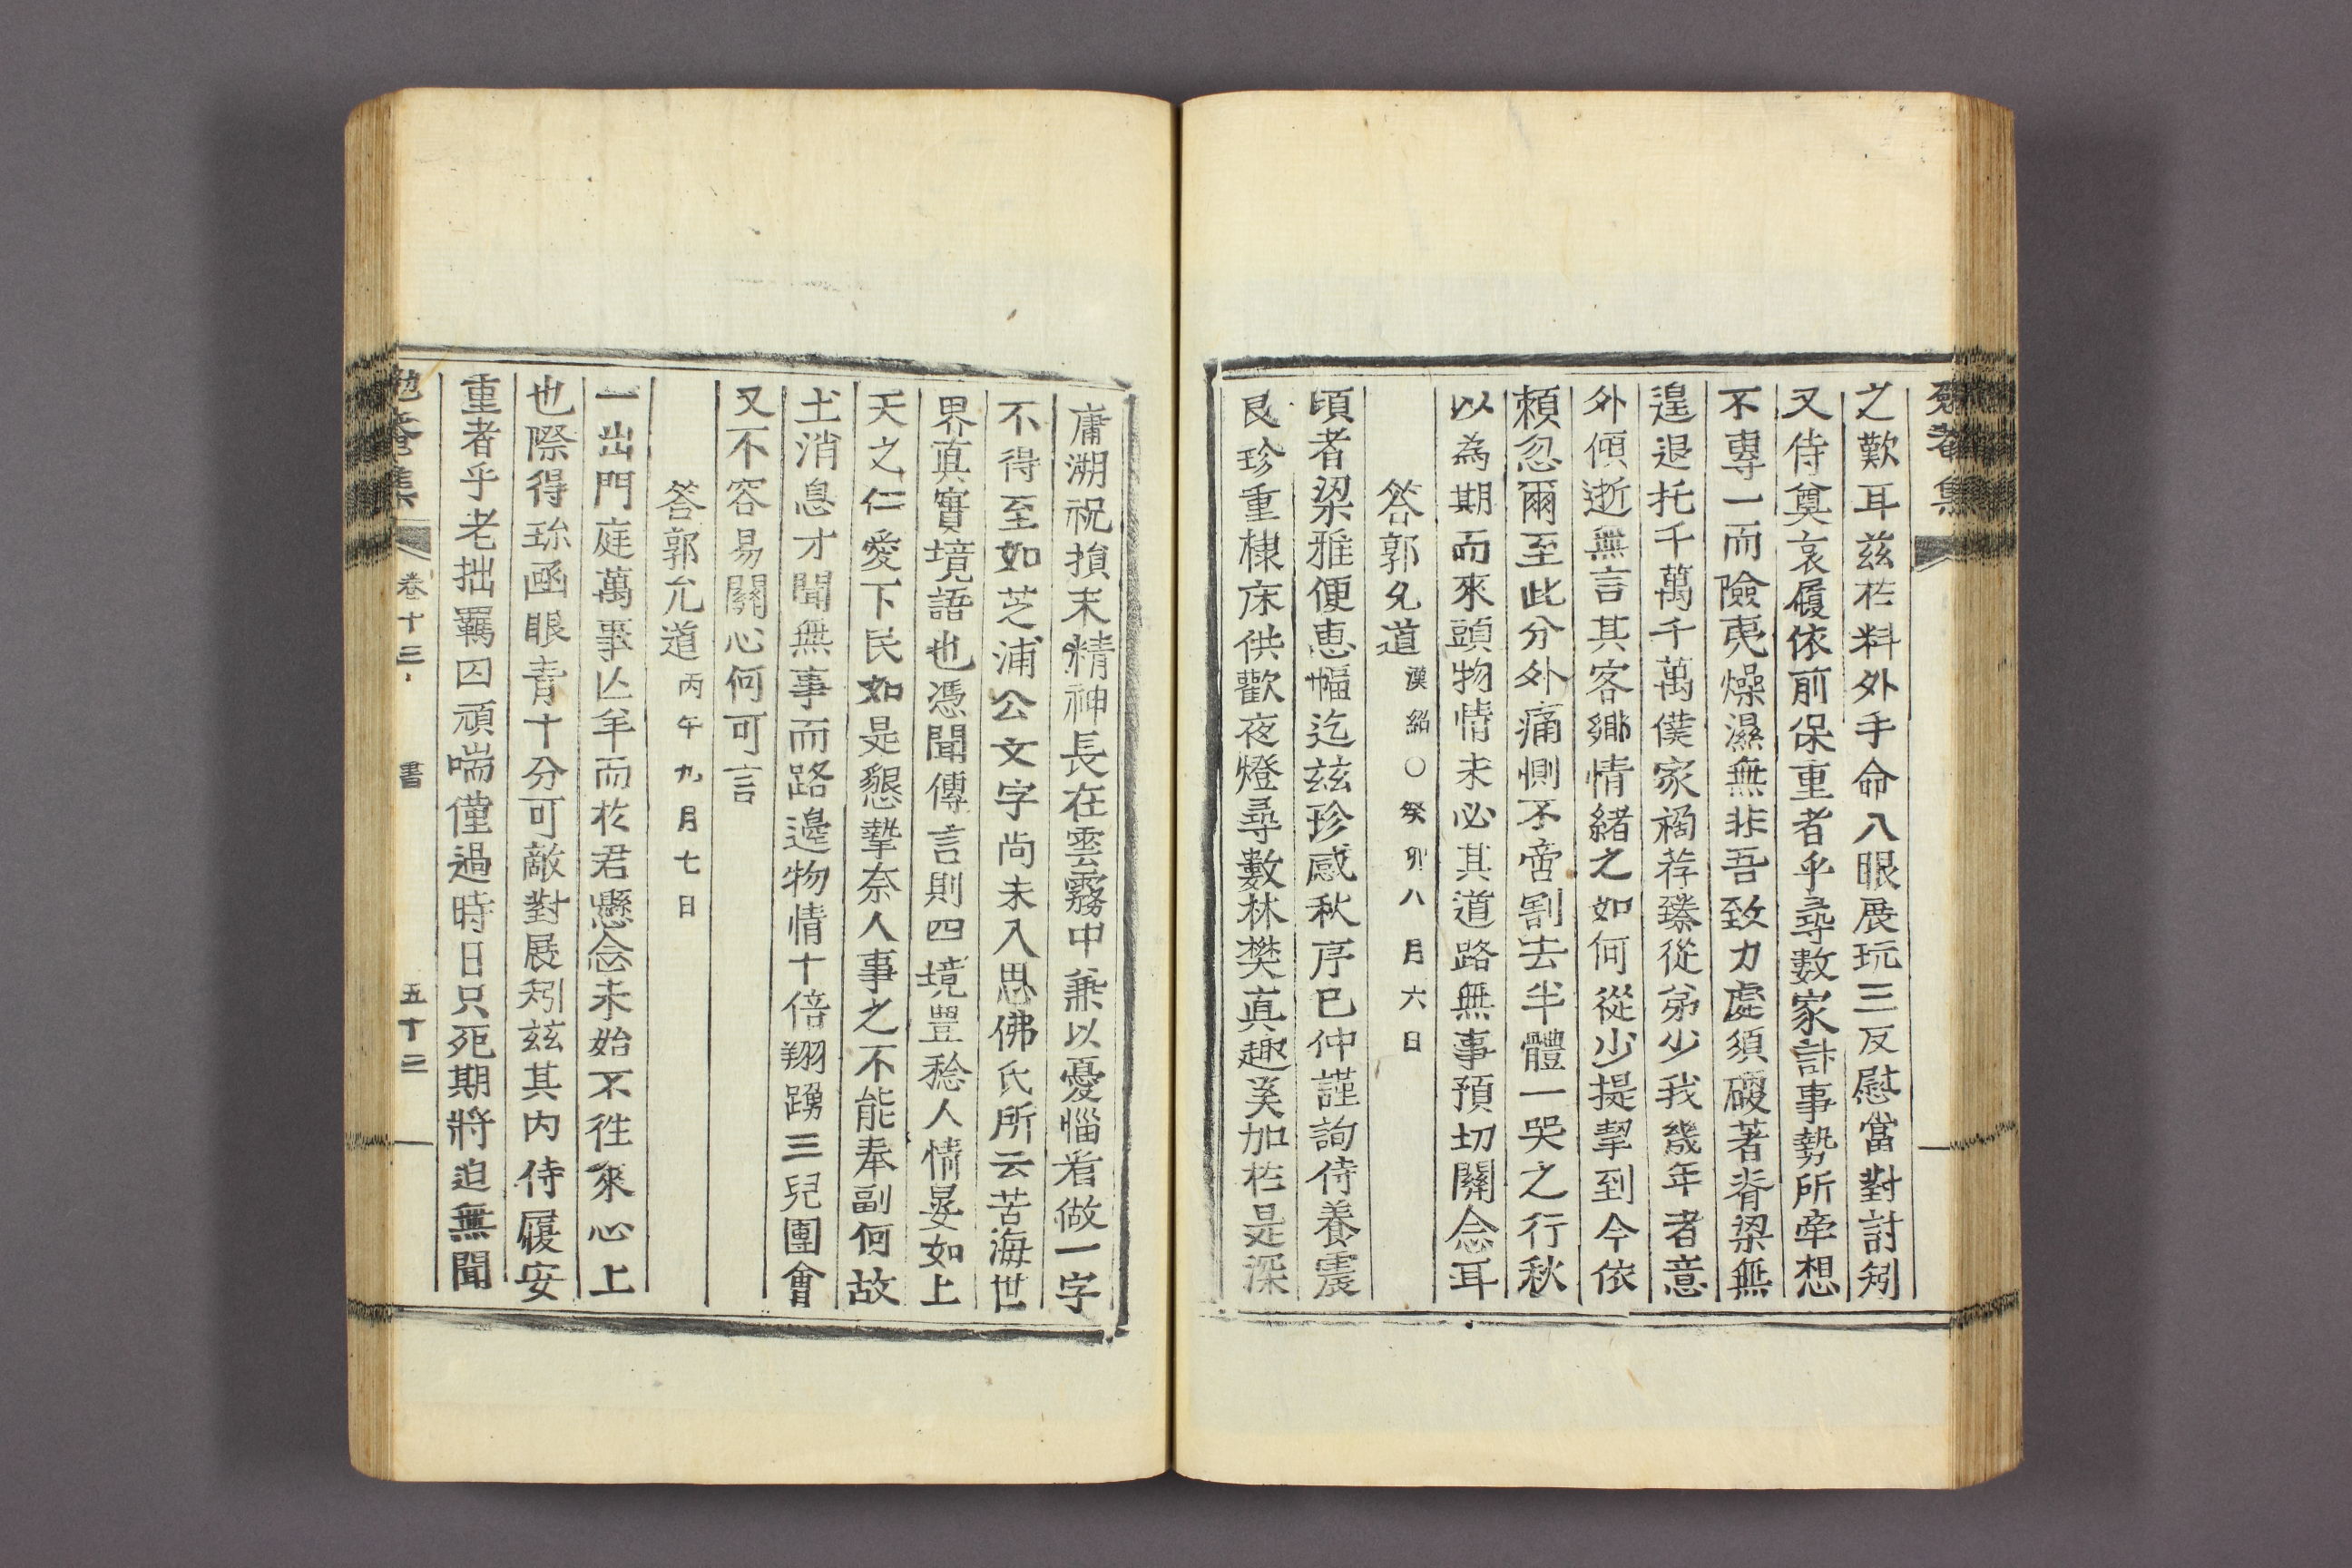 勉菴集
之歎耳玆於料外手命入眼展玩三反慰當對討矧
又侍奠哀履依前保重者乎尋數家計事勢所牽想
不專一而險夷燥濕無非吾致力處須硬著脊梁無
遑退托千萬千萬僕家禍荐臻從弟少我幾年者意
外傾逝無言其客鄕情緖之如何從少提挈到今依
賴忽爾至此分外痛惻不啻割去半體一哭之行秋
以為期而來頭物情未必其道路無事預切關念耳
答郭允道 漢紹○癸卯八月六日
頃者梁雅便惠幅迄玆珍感秋序已仲謹詢侍養震
艮珍重棣床供歡夜燈尋數林樊真趣奚加於是深
庸溯祝損末精神長在雲霧中兼以憂惱看做一字
不得至如芝浦公文字尚未入思佛氏所云苦海世
界真實境語也憑聞傳言則四境豊稔人情晏如上
天之仁愛下民如是懇摯奈人事之不能奉副何故
土消息才聞無事而路邊物情十倍翔踴三兒團會
又不容易關心何可言
答郭允道 丙午九月七日
一出門庭萬事亾羊而於君懸念未始不徃來心上
也際得珎凾眼青十分可敵對展矧玆其内侍履安
重者乎老拙羈囚頑喘僅過時日只死期將迫無聞
勉菴集 卷十三 書 五十三